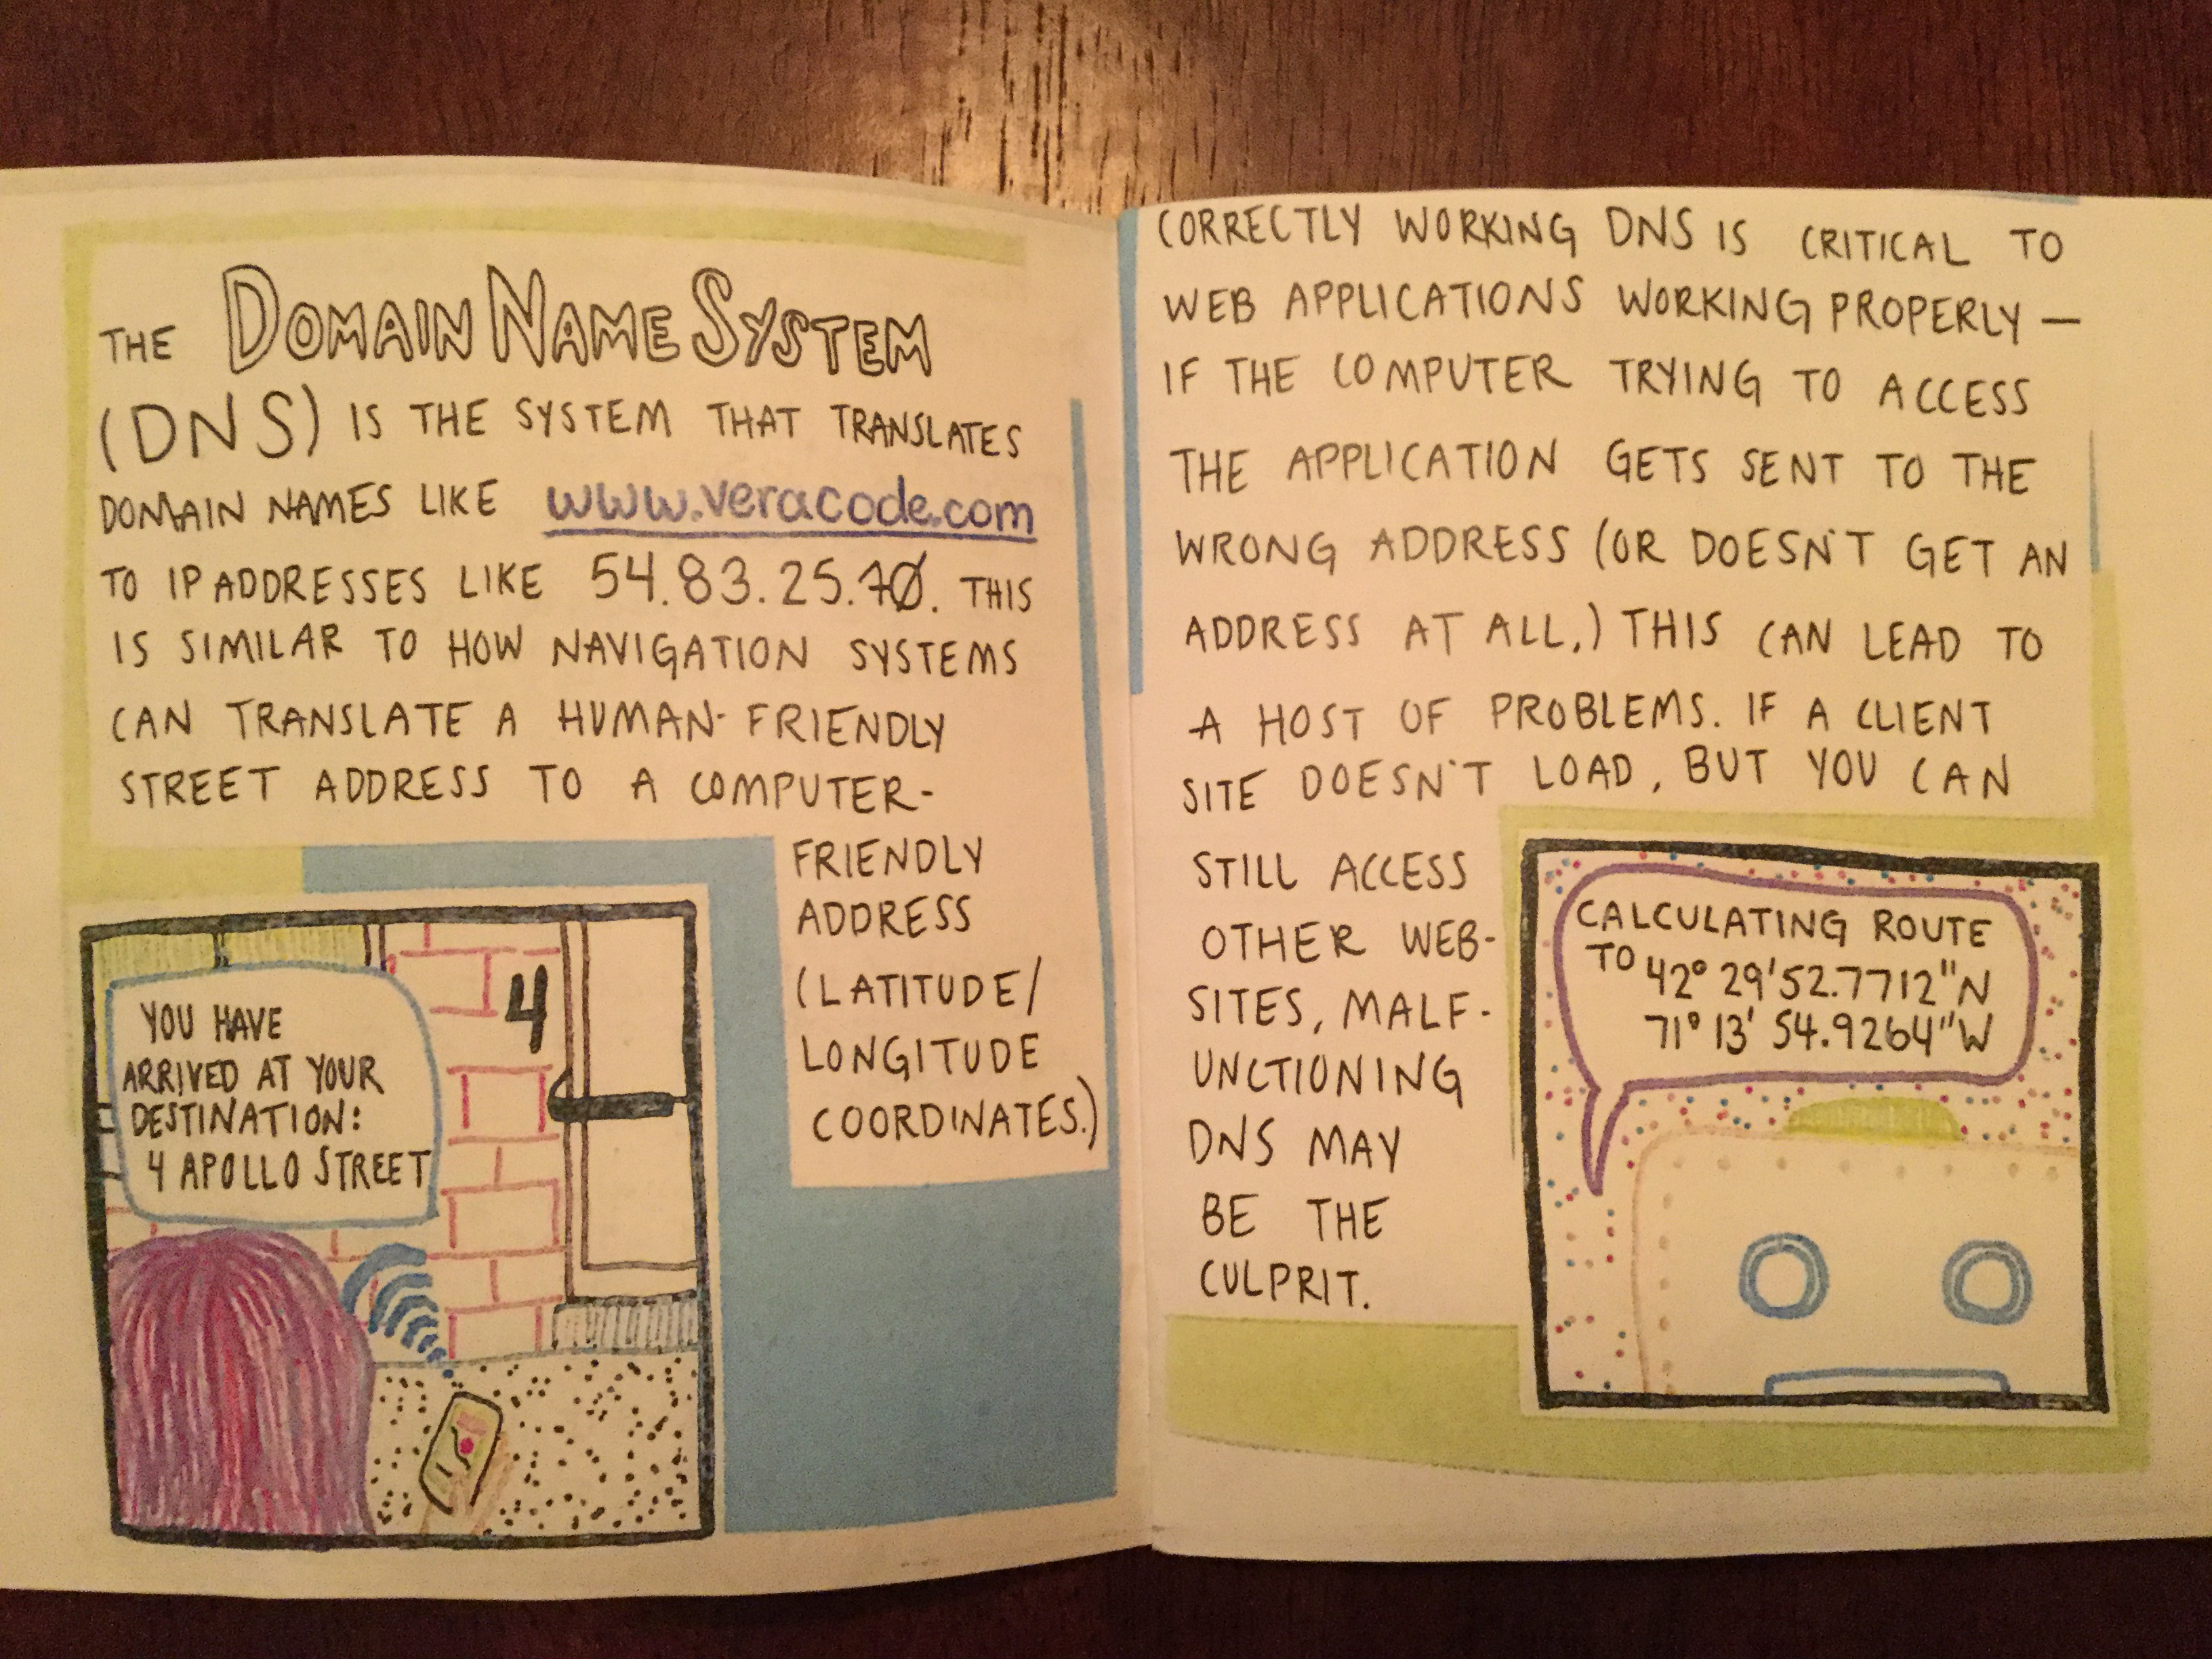 THE DOMAIN NAME SYSTEM
(DNS) IS THE SYSTEM THAT TRANSLATES
DOMAIN NAMES LIKE www.veracode.com
TO IP ADDRESSES LIKE 54.83.25.70. THIS
IS SIMILAR TO HOW NAVIGATION SYSTEMS
CAN TRANSLATE A HUMAN-FRIENDLY
STREET ADDRESS TO A COMPUTER-
FRIENDLY
ADDRESS
(LATITUDE/
LONGITUDE
COORDINATES.)
YOU HAVE
ARRIVED AT YOUR
DESTINATION:
4 APOLLO STREET
4
CORRECTLY WORKING DNS IS CRITICAL TO
WEB APPLICATIONS WORKING PROPERLY —
IF THE COMPUTER TRYING TO ACCESS
THE APPLICATION GETS SENT TO THE
WRONG ADDRESS (OR DOESN'T GET AN
ADDRESS AT ALL.) THIS CAN LEAD TO
A HOST OF PROBLEMS. IF A CLIENT
SITE DOESN'T LOAD, BUT YOU CAN
STILL ACCESS
OTHER WEB-
SITES, MALF-
UNCTIONING
DNS MAY
BE THE
CULPRIT.
CALCULATING ROUTE
TO 42° 29'52.7712"N
71° 13' 54.9264"W